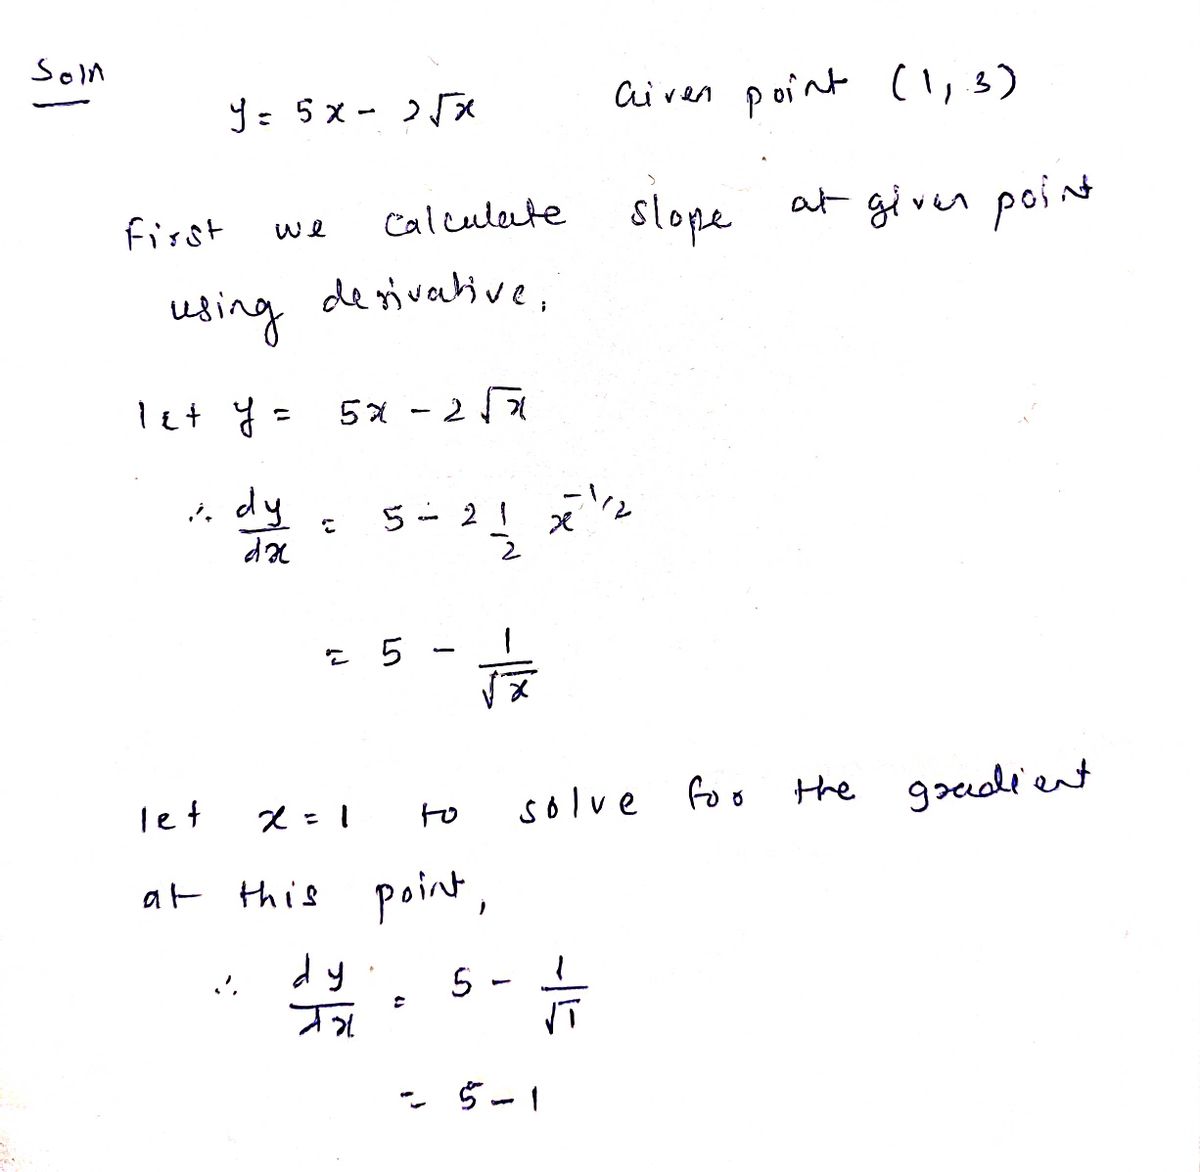 Soln
y = 5x - 2√x Given point (1, 3)
First we calculate slope at given point
using derivative,
let y = 5x - 2√x
∴ dy/dx = 5 - 2 1/2 x^-1/2
= 5 - 1/√x
let x = 1 to solve for the gradient
at this point,
∴ dy/dx = 5 - 1/√1
= 5 - 1